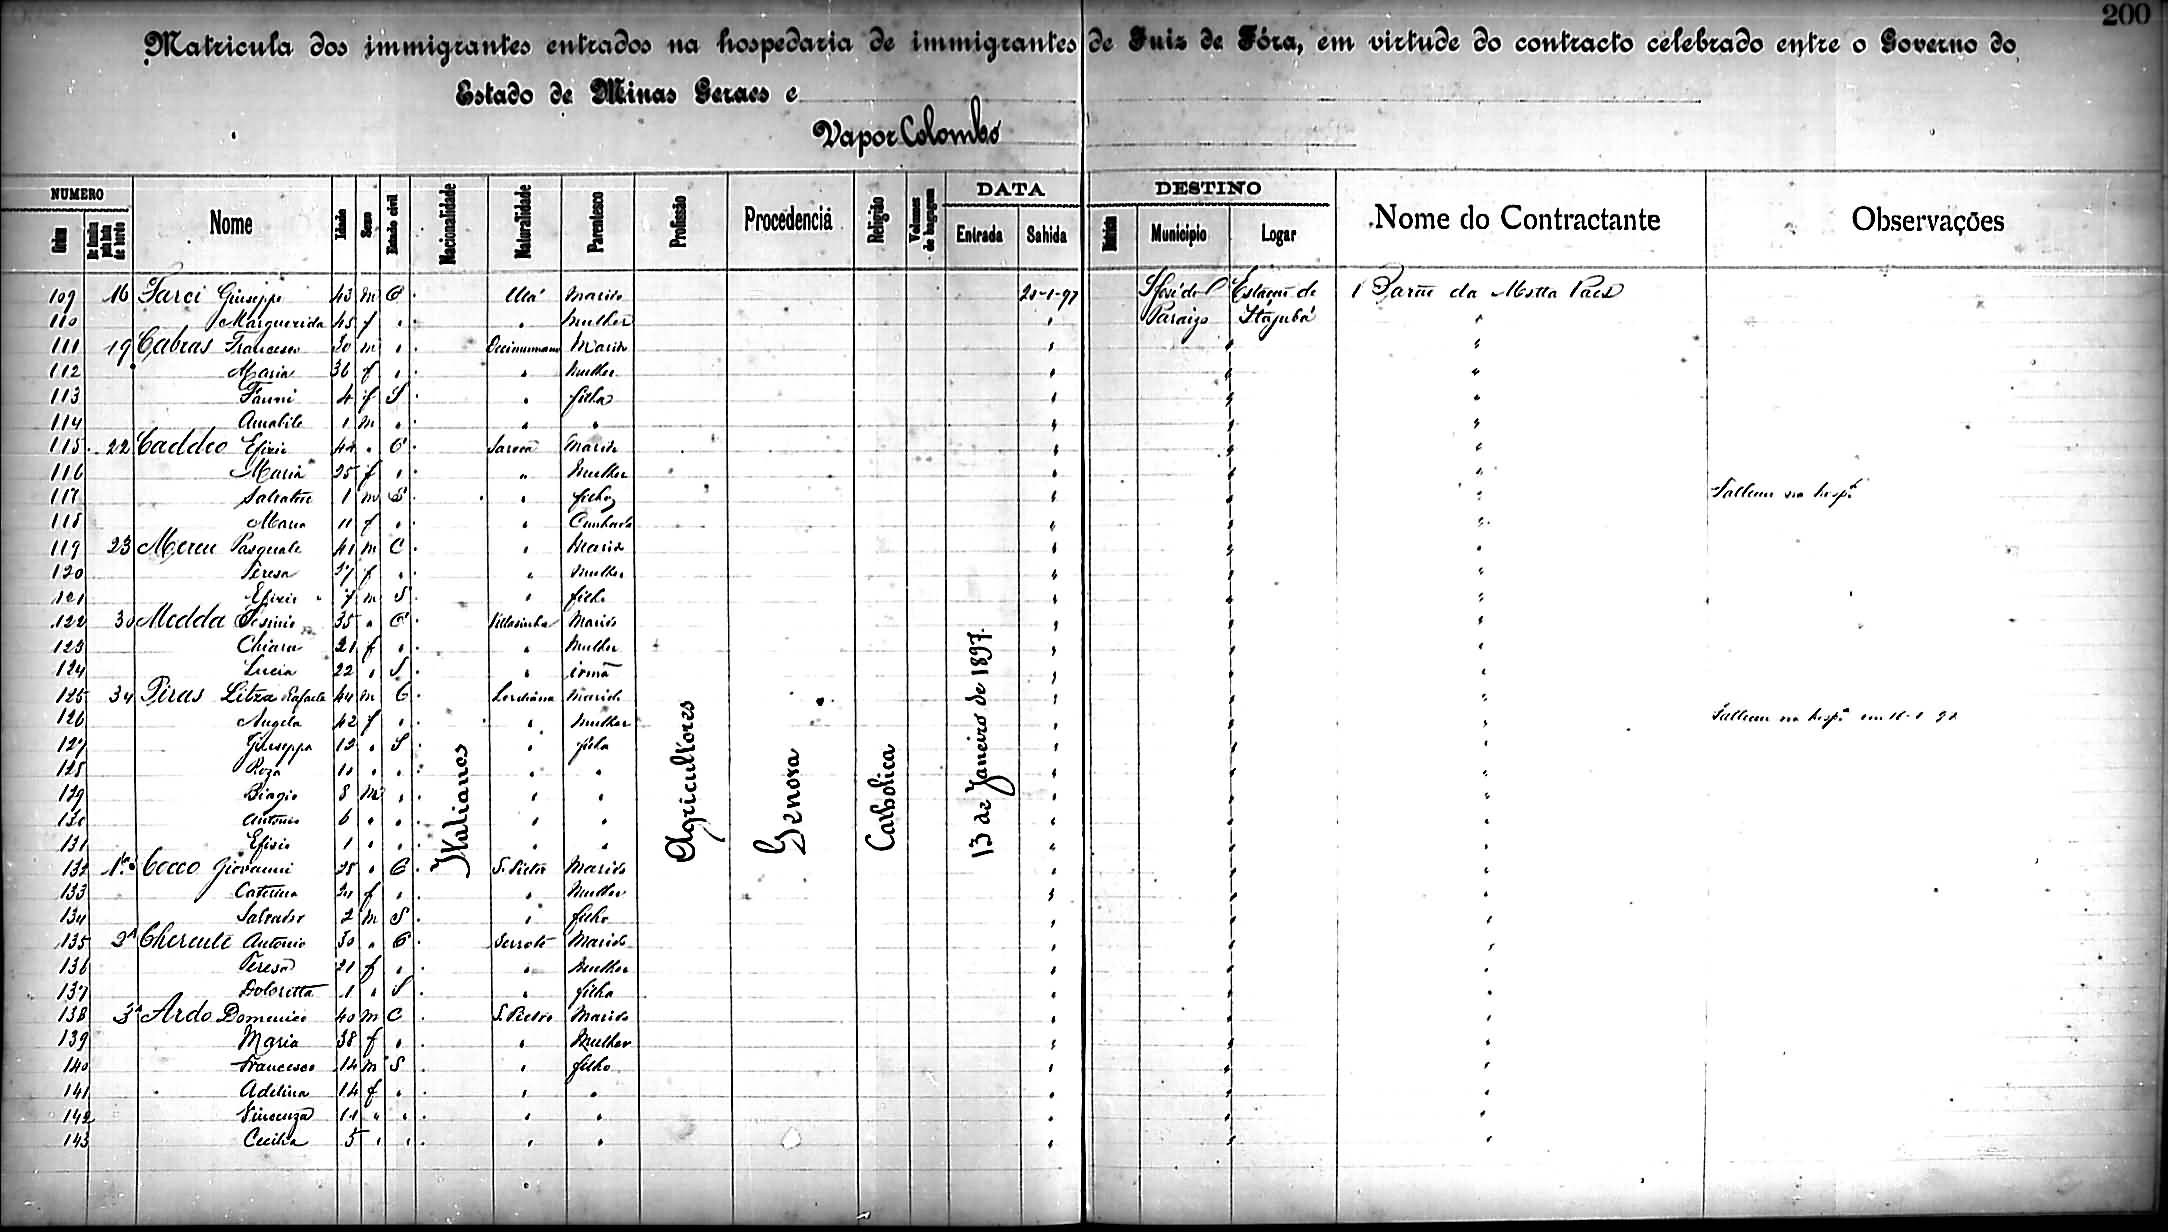 200
Matricula dos immigrantes entrados na hospedaria de immigrantes de Juiz de Fóra, em virtude do contracto celebrado entre o Governo do
Estado de Minas Geraes e
Vapor Colombo
NUMERO Nome Idade Sexo Estado civil Nacionalidade Naturalidade Parentesco Profissão Procedencia Religião Volumes de bagagem DATA DESTINO Nome do Contractante Observações
Ordem De familia pela lista de bordo Entrada Sahida Municipio Logar
Italianos
Agricultores
Genova
Catholica
13 de Janeiro de 1897.
109 16 Farci Giuseppe 43 m C Marido 20-1-97 S José do Estação de Barão da Motta Paes
110 Marguerida 45 f " " Mulher " Paraizo Itajubá "
111 19 Cabras Francesco 30 m " Decimomano Marido " " "
112 Maria 36 f " " Mulher " " "
113 Fanni 4 f S " filha " " "
114 Amabile 1 m " " " " " "
115 22 Caddeo Efizio 44 " C Marido " " "
116 Maria 25 f " " Mulher " " "
117 Salvatore 1 m S " filho " " " Falleceu na hospª
118 Maria 11 f " " Cunhada " " "
119 23 Mereu Pasquale 41 m C " Marido " " "
120 Teresa 37 f " " Mulher " " "
121 Efizio 7 m S " filho " " "
122 30 Medda Sisinio 35 " C Marido " " "
123 Chiara 21 f " " Mulher " " "
124 Lucia 22 " S " irmã " " "
125 34 Piras Litza Rafaele 44 m C Marido " " "
126 Angela 42 f " " Mulher " " " Falleceu na hospª em
127 Giuseppa 12 " S " filha " " "
128 Roza 10 " " " " " " "
129 Biagio 8 m " " " " " "
130 Antonio 6 " " " " " " "
131 Efisio 1 " " " " " " "
132 1ª Cocco Giovanni 28 " C S. Pietro Marido " " "
133 Caterina 24 f " " Mulher " " "
134 Salvador 2 m S " filho " " "
135 2ª Cherente Antonio 30 " C Marido " " "
136 Teresa 21 f " " Mulher " " "
137 Doloretta 1 " S " filha " " "
138 3ª Ardo Domenico 40 m C S. Pietro Marido " " "
139 Maria 38 f " " Mulher " " "
140 Francesco 14 m S " filho " " "
141 Adelina 14 f " " " " " "
142 Vincenza 11 " " " " " " "
143 Cecilia 5 " " " " " " "